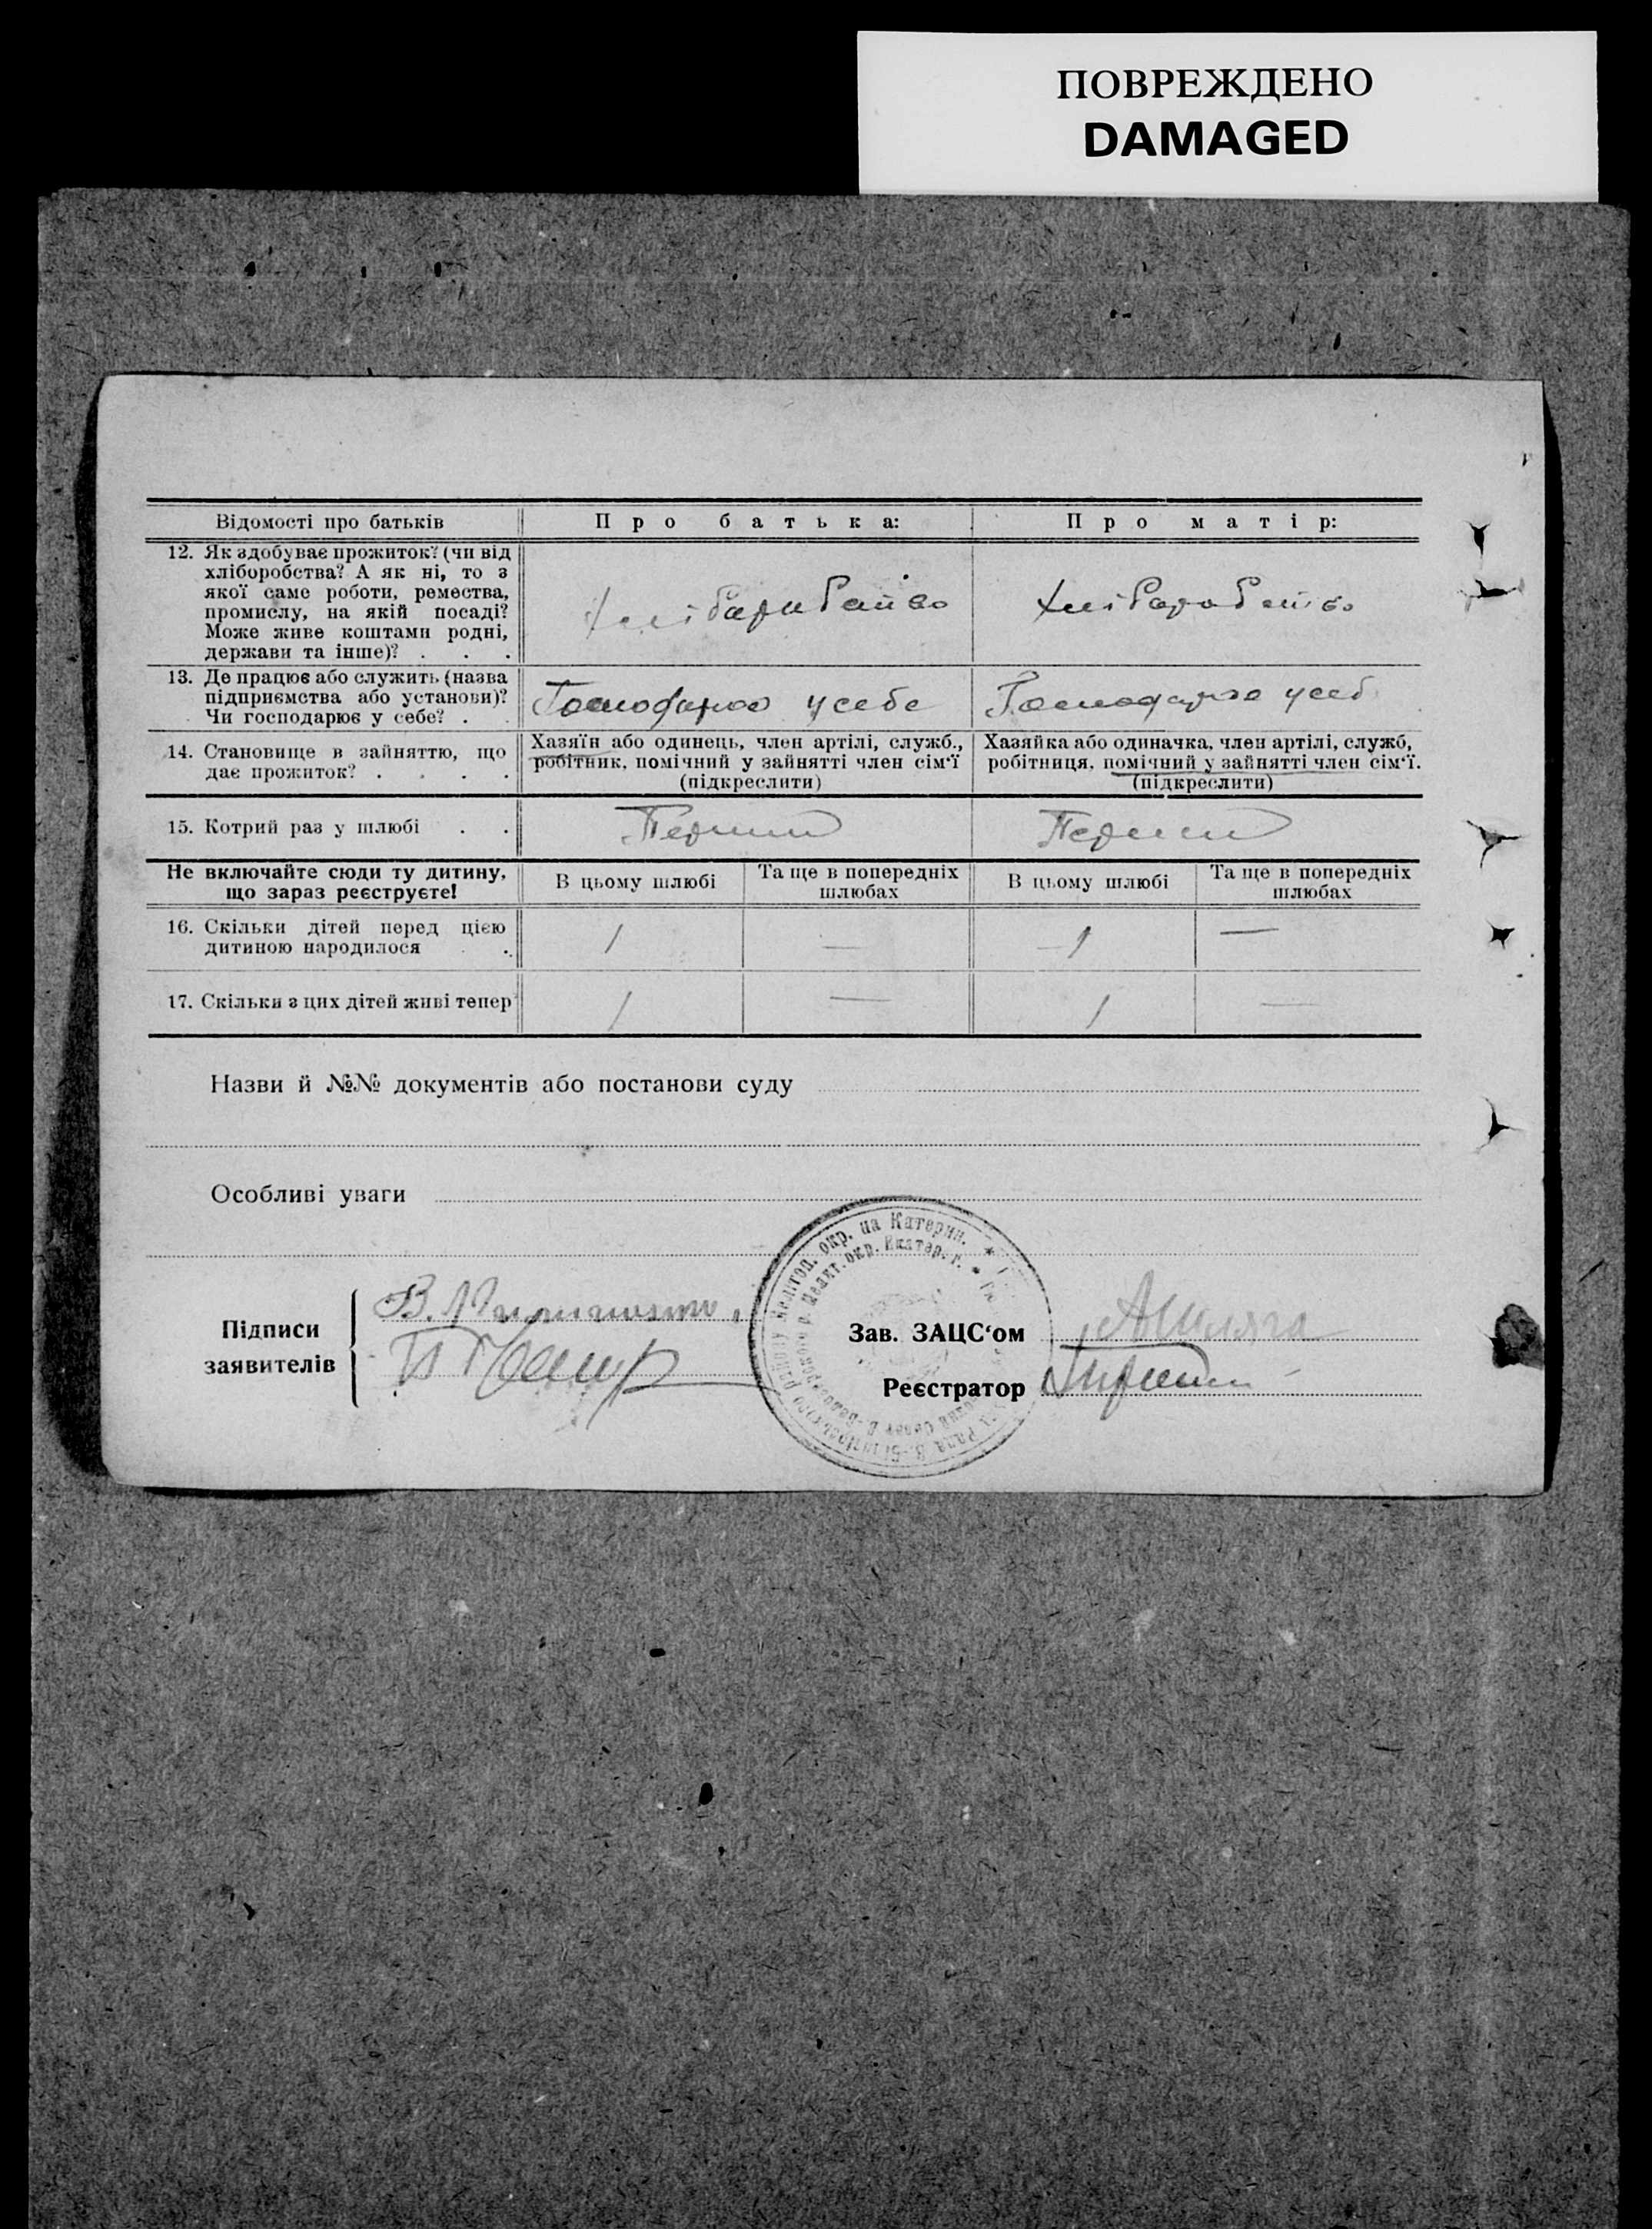 ПОВРЕЖДЕНО
DAMAGED
Відомості про батьків
Про батька:
Про матір:
12. Як здобуває прожиток? (чи від
хліборобства? А як ні, то з
якої саме роботи, ремества,
промислу, на якій посаді?
Може живе коштами родні,
держави та інше)? . . .
Хлібаробство
Хлібаробство
13. Де працює або служить (назва
підприємства або установи)?
Чи господарює у себе? . .
Господарює у себе
Господарює у себ
14. Становище в зайняттю, що
дає прожиток? . . . .
Хазяїн або одинець, член артілі, служб.,
робітник, помічний у зайнятті член сім'ї
(підкреслити)
Хазяйка або одиначка, член артілі, служб,
робітниця, помічний у зайнятті член сім'ї.
(підкреслити)
15. Котрий раз у шлюбі . .
Перший
Перший
Не включайте сюди ту дитину,
що зараз реєструєте!
В цьому шлюбі
Та ще в попередніх
шлюбах
В цьому шлюбі
Та ще в попередніх
шлюбах
16. Скільки дітей перед цією
дитиною народилося . .
1
—
1
—
17. Скільки з цих дітей живі тепер
1
—
1
—
Назви й №№ документів або постанови суду
Особливі уваги
Підписи
заявителів
В.
Зав. ЗАЦС'ом
Реєстратор
окр. на Катерин.
окр. Екатер. г.